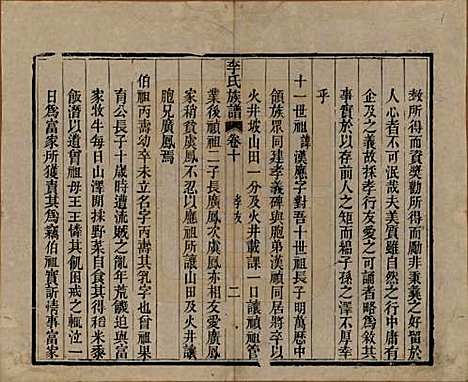 教所得而資奬勸所得而勵非秉彝之好曷以有此
人心者不可泯哉夫美質雖自然之行中庸有
企及之義故採孝行友愛之可誦者略為敘其
事實於以垂前人之矩而綿子孫之澤不厚有
乎
十一世祖諱漢應字對吾十世祖長子明萬歷
領族眾同建孝義碑與胞弟漢頑同居將卒以
火井坡山田一分及火井載課一口讓禎祖管
業後禎祖二子長廣鳳次虞鳳亦相友愛廣鳳
家稍裕虞鳳不忍以應祖所讓山田及火井載
胞兄廣鳳焉
李氏族譜 卷十 孝友 二
伯祖丙壽幼卒未立名字丙壽其乳字也曾祖果
育公長子十歲時遭流賊之亂年荒穀迫與富
家牧牛每日山澤間採野菜自食其得粗米藜
飯潛以遺曾祖母王王憐其飢困輒噎泣一
日為富家所獲究其為竊伯祖實訴情事富家